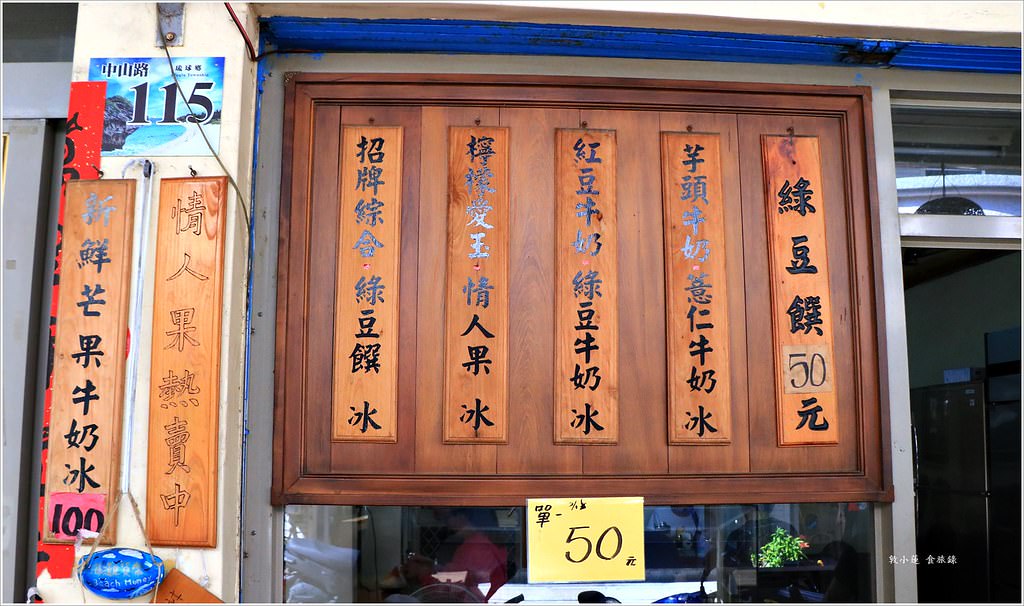 中山路
琉球鄉
115
新鮮芒果牛奶冰
100
情人果熱賣中
招牌綜合·綠豆饌 冰
檸檬愛玉·情人果 冰
紅豆牛奶·綠豆牛奶 冰
芋頭牛奶·薏仁牛奶 冰
綠豆饌 50 元
單一
50元
Beach Money
敦小蓮 食旅錄